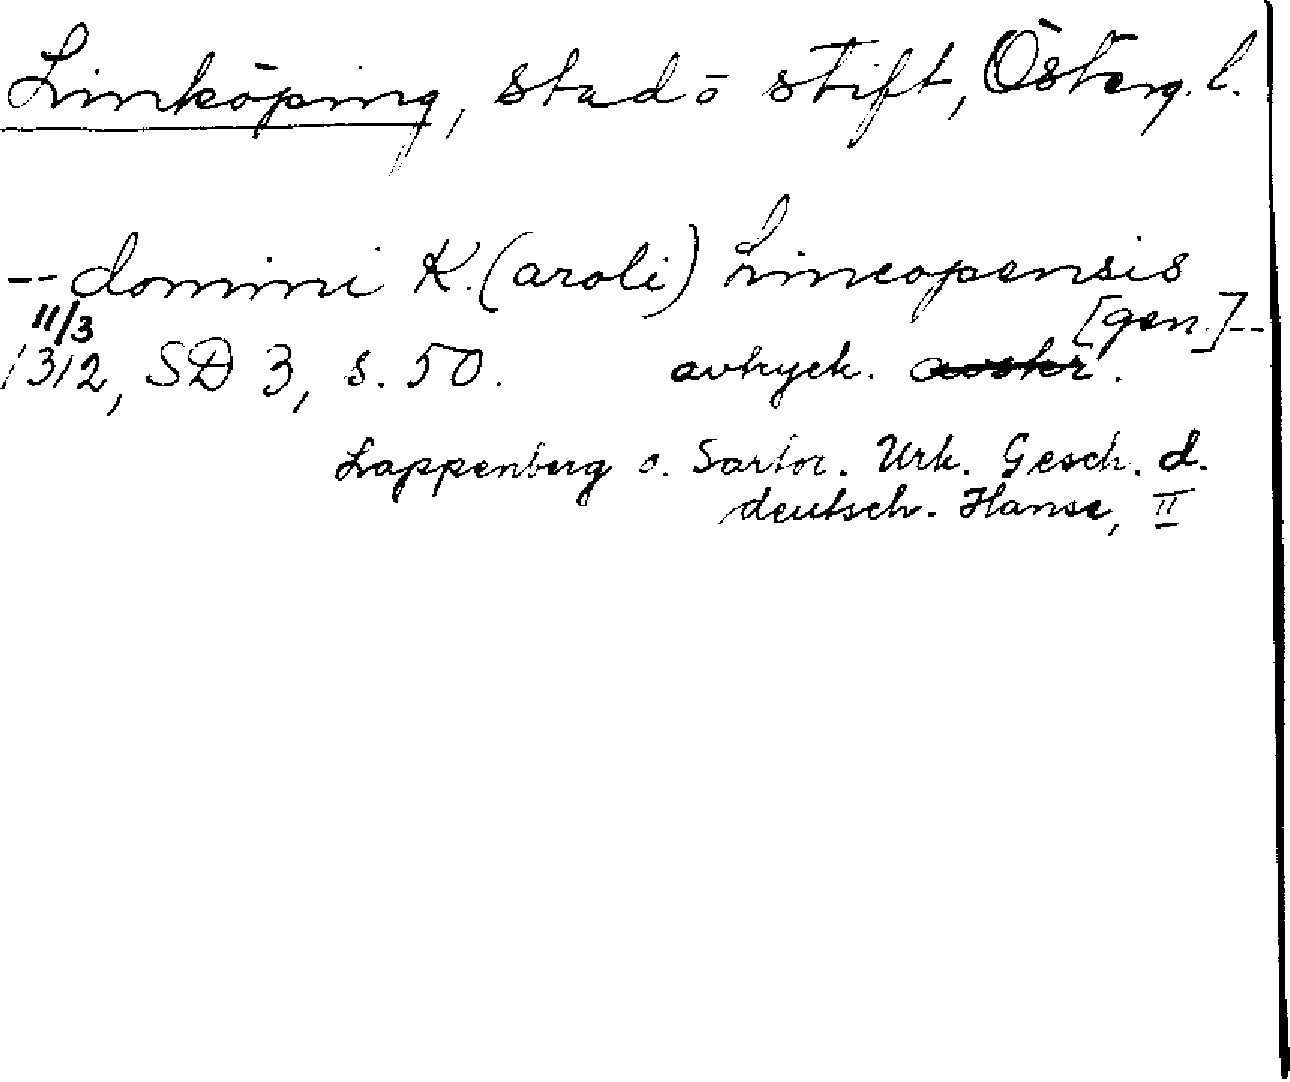 Linköping, stad o stift, Österg. l.
-- domini K.(aroli) Lincopensis
[gen.]--
11/3
1312, SD 3, s. 50. avtryck. avskr.
Lappenberg o. Sartor. Urk. Gesch. d.
deutsch. Hanse, II